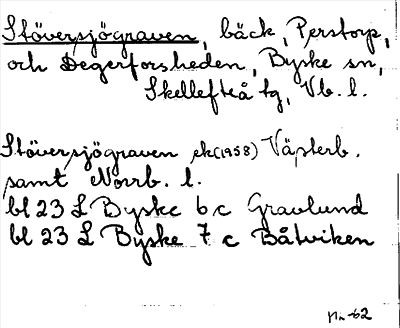 Stöversjögraven, bäck, Perstorp,
och Degerforsheden, Byske sn,
Skellefteå tg, Vb. l.
Stöversjögraven ek(1958) Västerb.
samt Norrb. l.
bl 23 L Byske 6 c Gravlund
bl 23 L Byske 7 c Båtviken
-62